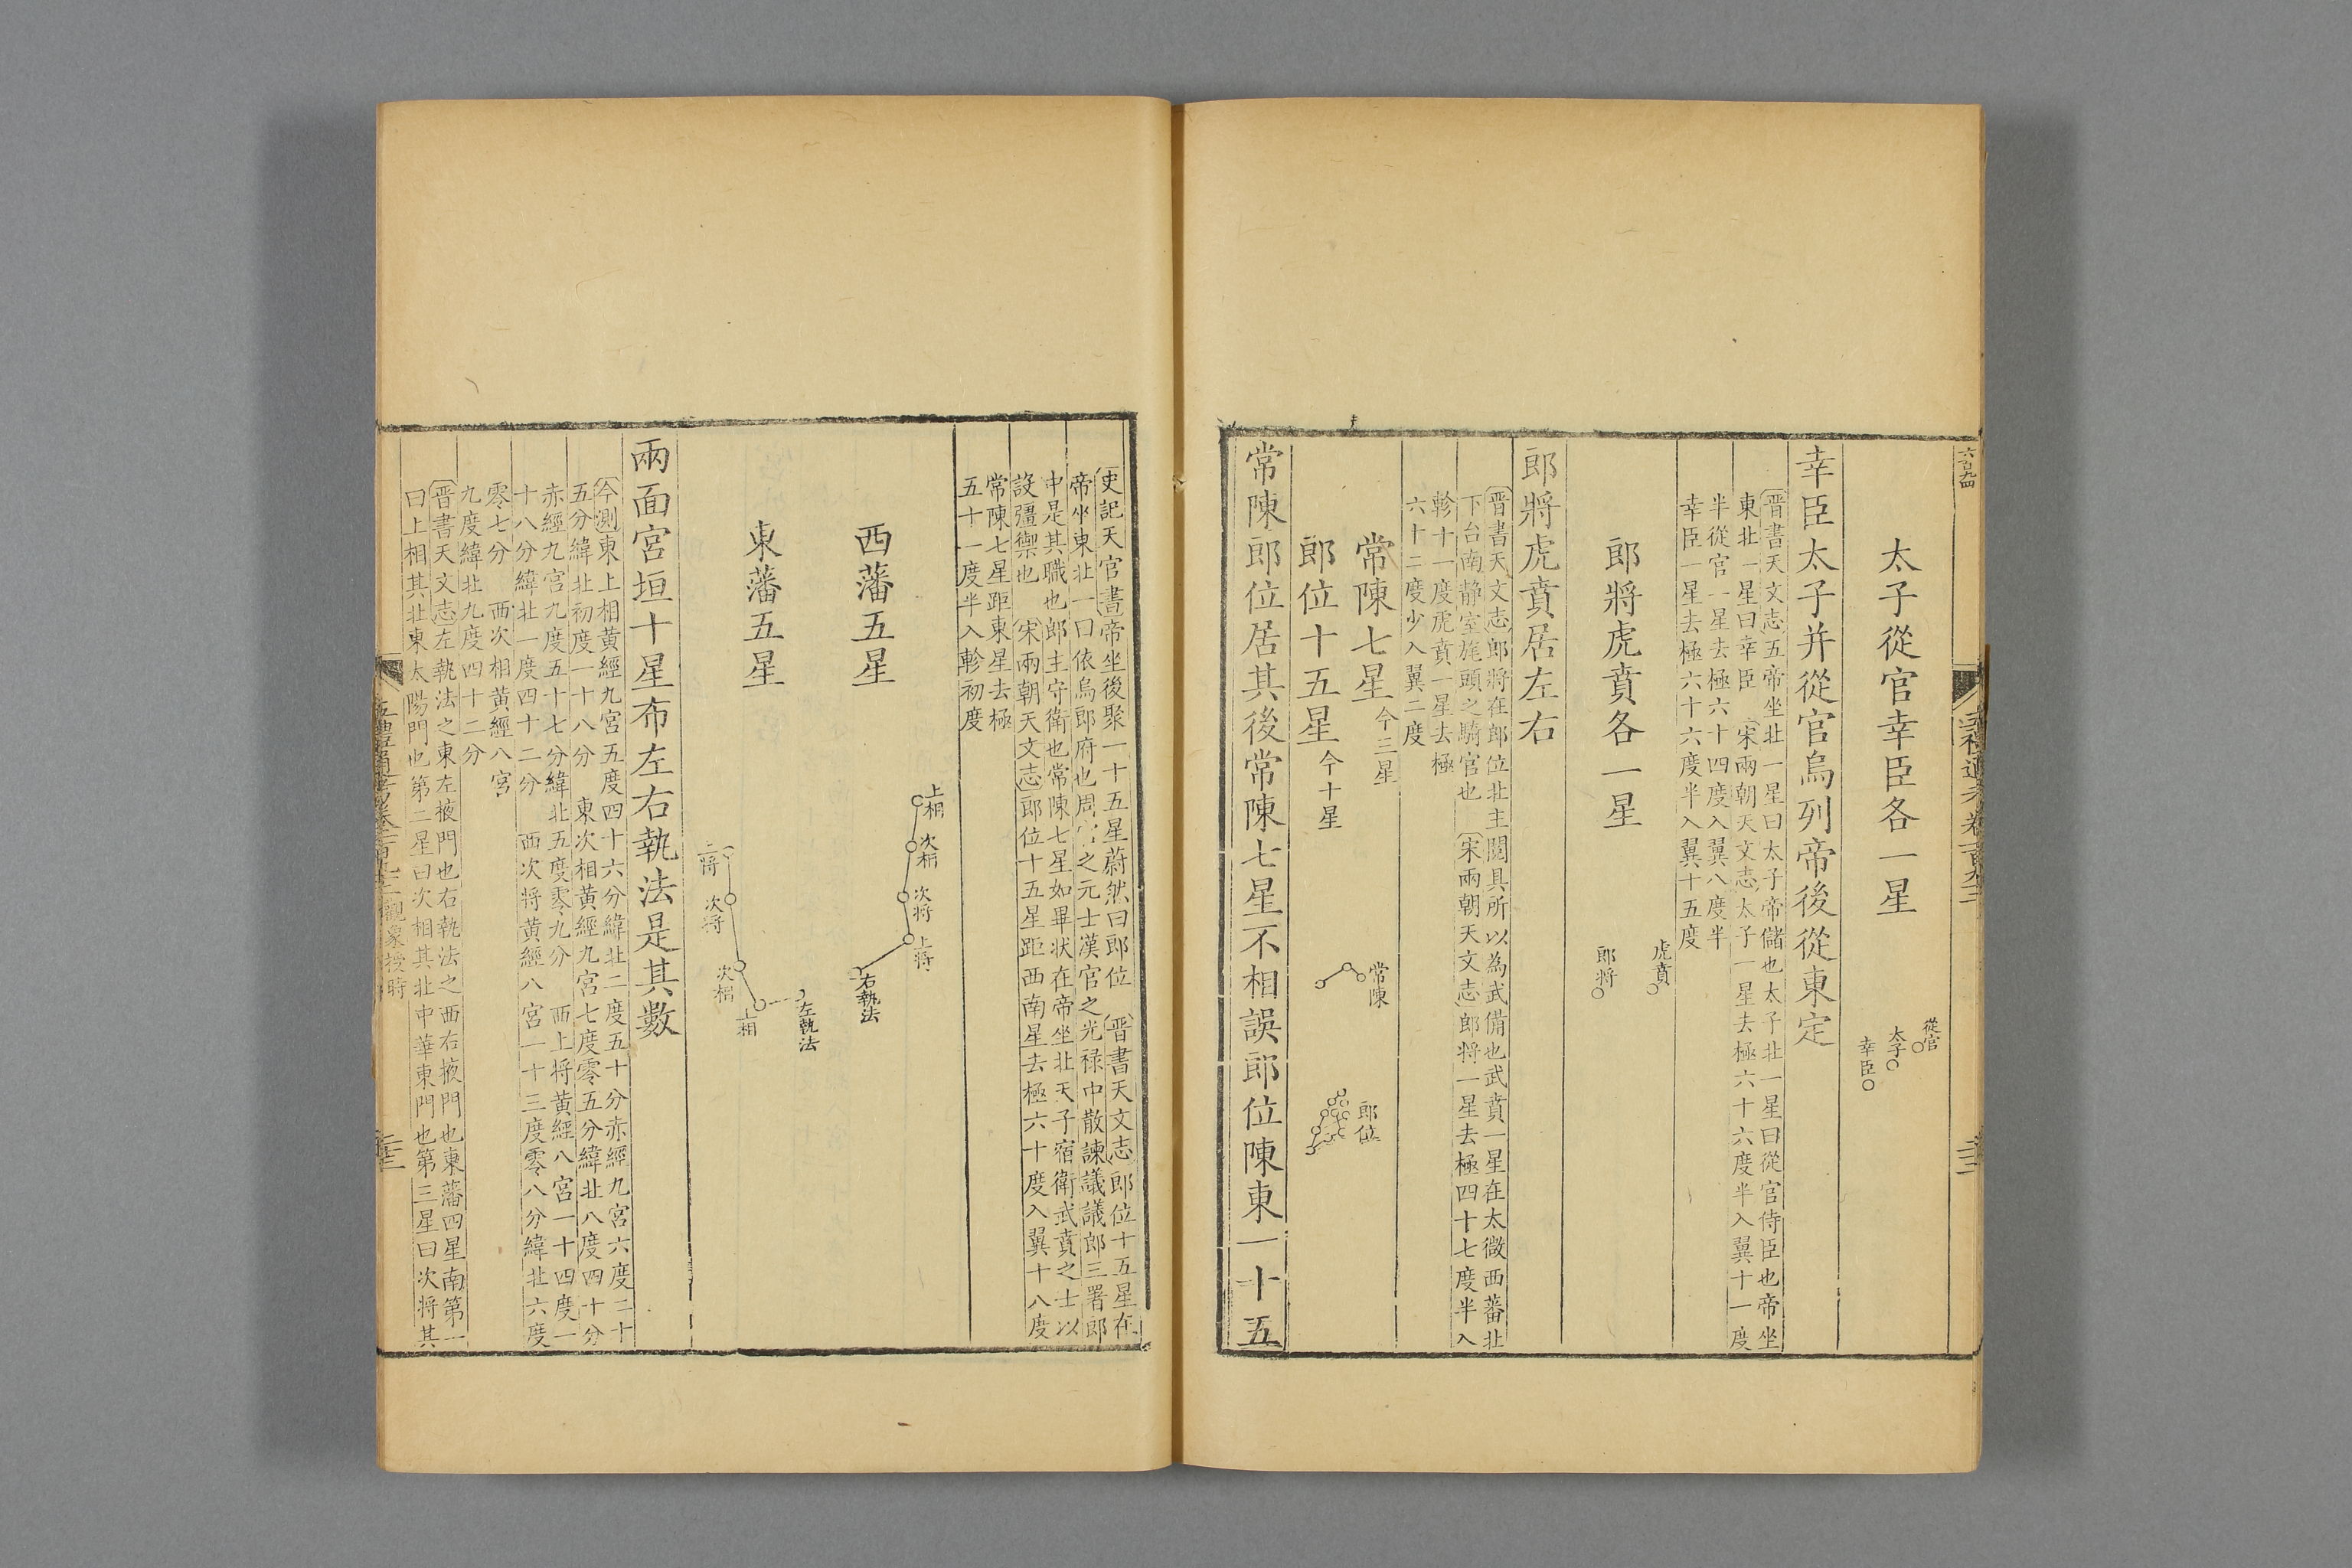 六百九四
太子從官幸臣各一星
從官
太子
幸臣
幸臣太子并從官烏列帝後從東定
晋書天文志五帝坐北一星曰太子帝儲也太子北一星曰從官侍臣也帝坐
東北一星曰幸臣 宋兩朝天文志太子一星去極六十六度半入翼十一度
半從官一星去極六十四度入翼八度半
幸臣一星去極六十六度半入翼十五度
郎將虎賁各一星
虎賁
郎将
郎將虎賁居左右
晋書天文志郎將在郎位北主閱具所以為武備也武賁一星在太微西蕃北
下台南静室旄頭之騎官也 宋兩朝天文志郎將一星去極四十七度半入
軫十一度虎賁一星去極
六十二度少入翼二度
常陳七星今三星
常陳
郎位十五星今十星
郎位
常陳郎位居其後常陳七星不相誤郎位陳東一十五
史記天官書帝坐後聚一十五星蔚然曰郎位 晋書天文志郎位十五星在
帝坐東北一曰依烏郎府也周官之元士漢官之光禄中散諫議議郎三署郎
中是其職也郎主守衛也常陳七星如畢状在帝坐北天子宿衛武賁之士以
設彊禦也宋兩朝天文志郎位十五星距西南星去極六十度入翼十八度
常陳七星距東星去極
五十一度半入軫初度
西藩五星
上相
次相
次将
上将
右執法
東藩五星
上将
次将
次相
上相
左執法
兩面宮垣十星布左右執法是其數
今測東上相黄經九宮五度四十六分緯北二度五十分赤經九宮六度二十
五分緯北初度一十八分 東次相黄經九宮七度零五分緯北八度四十分
赤經九宮九度五十七分緯北五度零九分 西上将黄經八宮一十四度一
十八分緯北一度四十二分 西次将黄經八宮一十三度零八分緯北六度
零七分 西次相黄經八宮
九度緯北九度四十二分
晋書天文志左執法之東左掖門也右執法之西右掖門也東藩四星南第一
曰上相其北東太陽門也第二星曰次相其北中華東門也第三星曰次将其
五禮通考卷一百九十二觀象授時